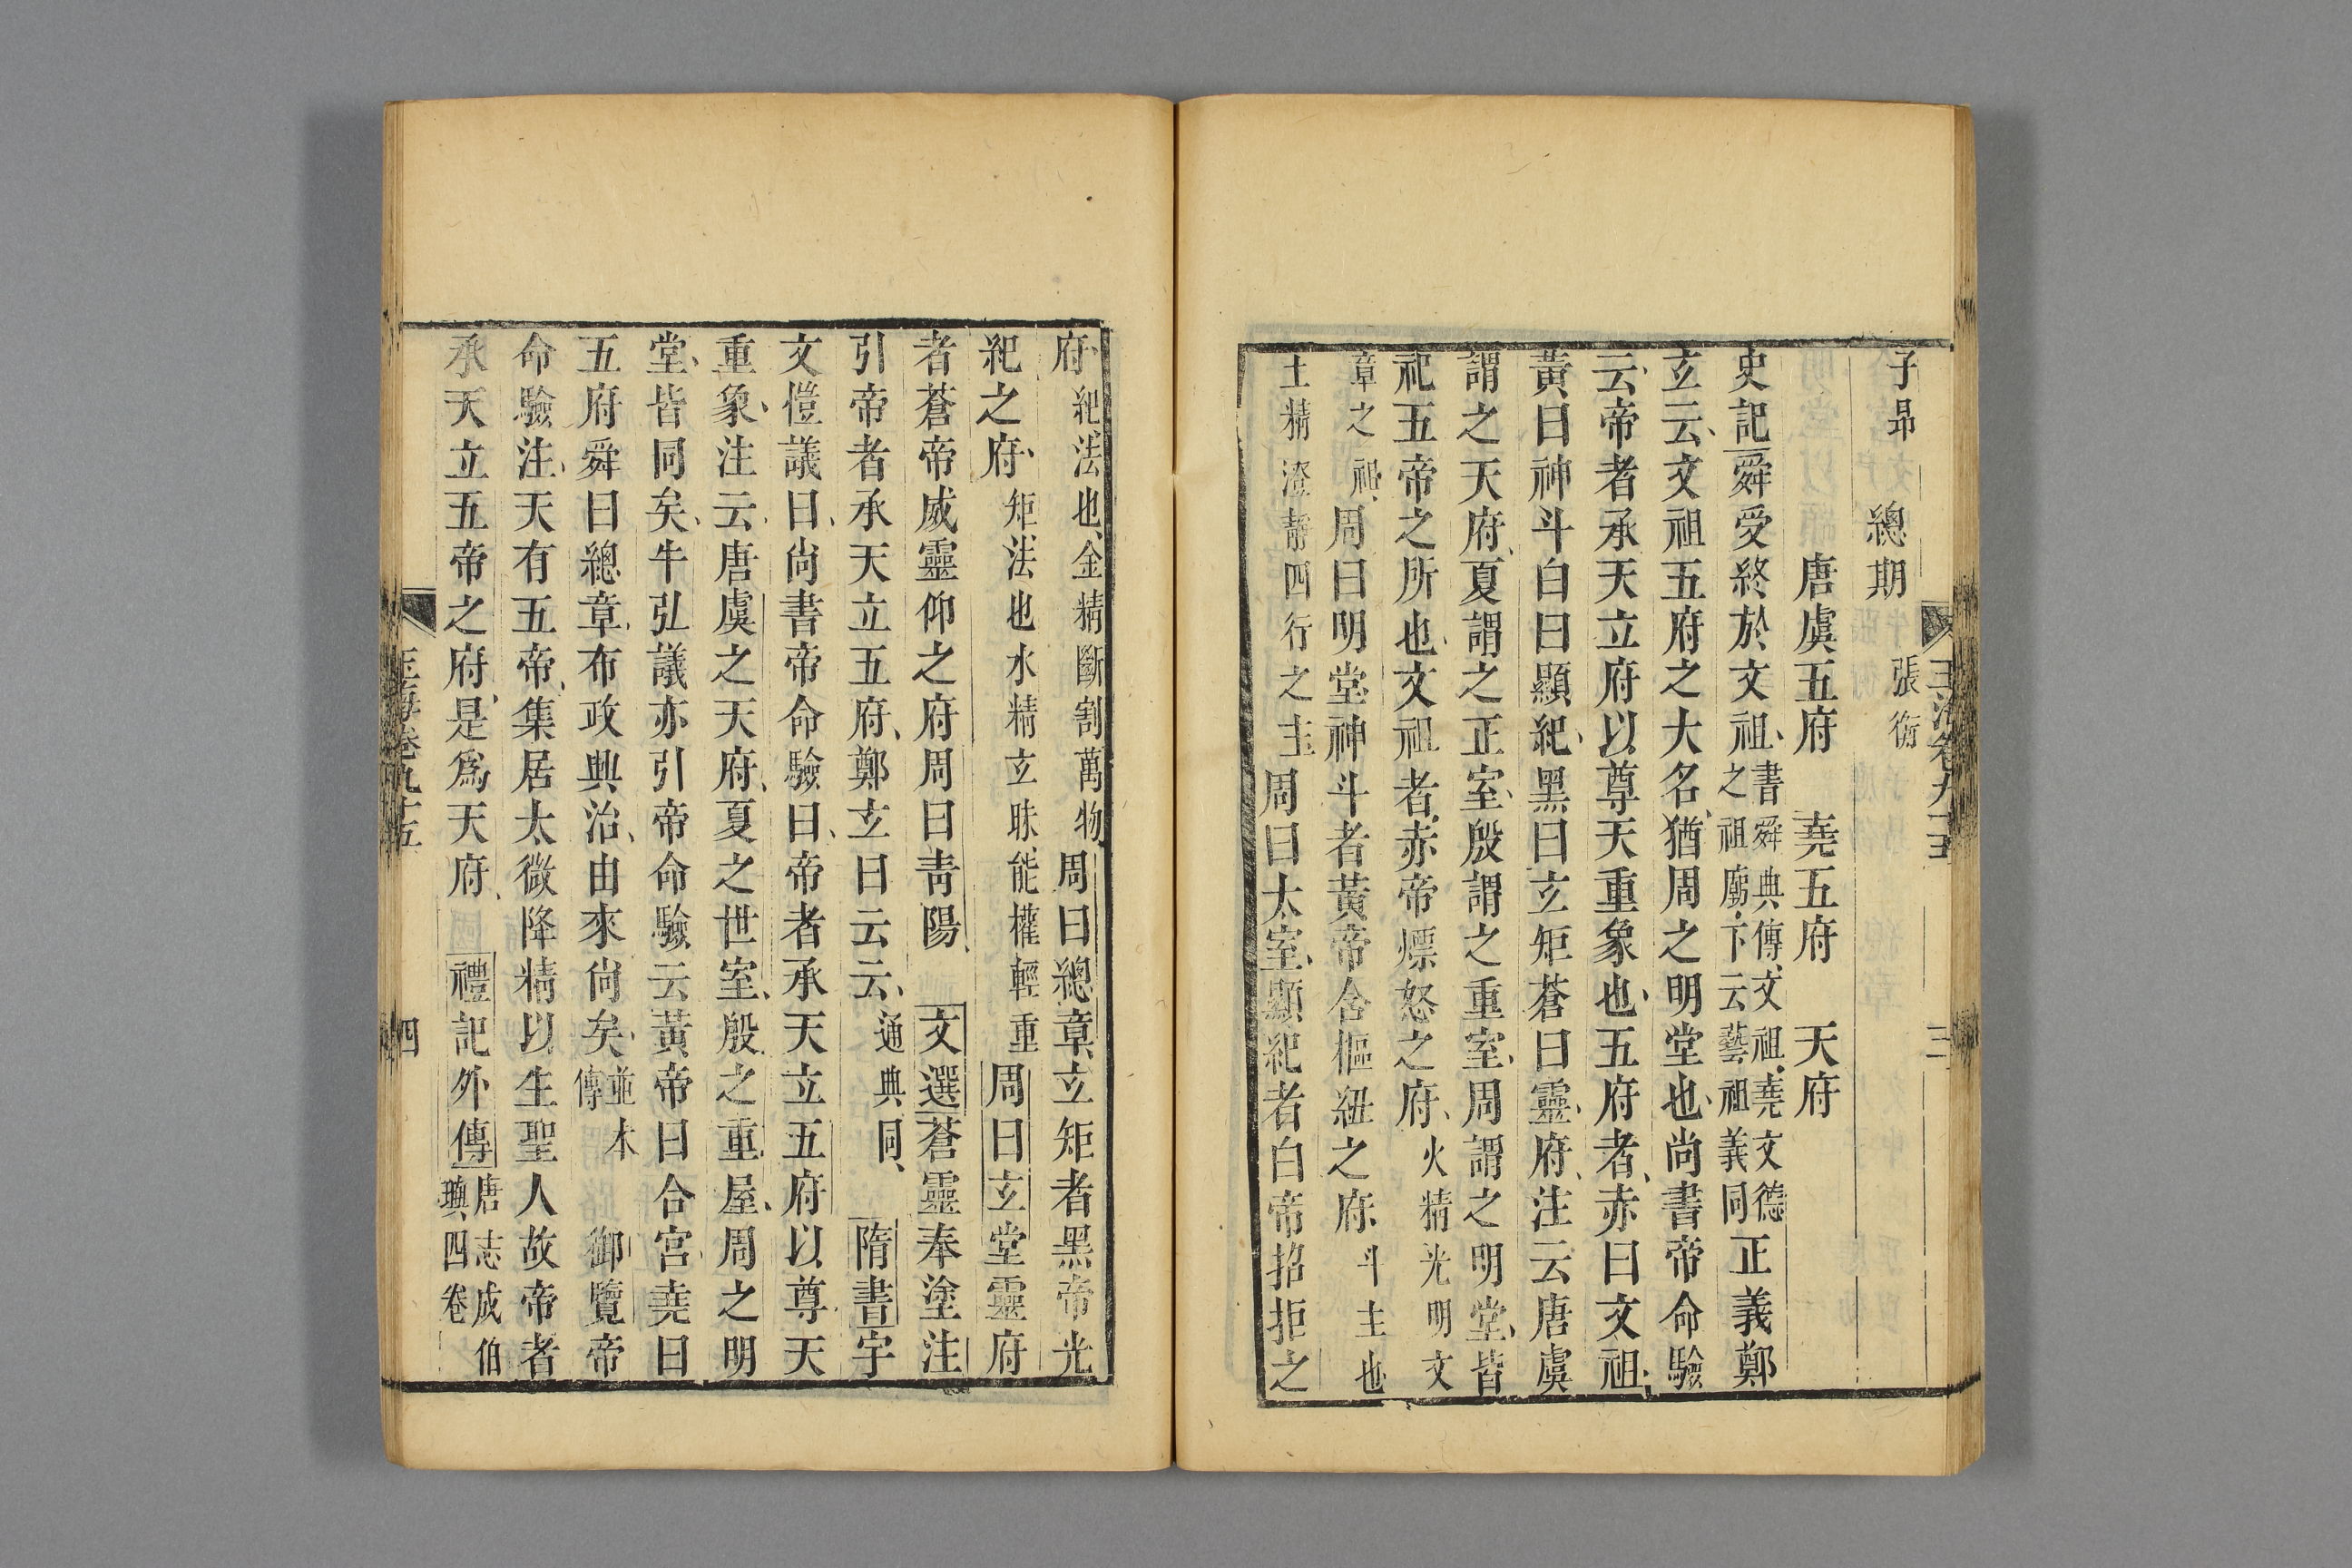 玉海卷九十五 三
子昻 總期 張衡
唐虞五府 堯五府 天府
史記舜受終於文祖書舜典傳文祖堯文德之祖廟下云藝祖義同正義鄭
玄云文祖五府之大名猶周之明堂也尚書帝命驗
云帝者承天立府以尊天重象也五府者赤曰文祖
黃曰神斗白曰顯紀黑曰玄矩蒼曰靈府注云唐虞
謂之天府夏謂之正室殷謂之重室周謂之明堂皆
祀五帝之所也文祖者赤帝熛怒之府火精光明文
章之祖周曰明堂神斗者黃帝含樞紐之府斗主也
土精澄靜四行之主周曰太室顯紀者白帝招拒之
府紀法也金精斷割萬物周曰總章玄矩者黑帝光
紀之府矩法也水精玄昧能權輕重周曰玄堂靈府
者蒼帝威靈仰之府周曰靑陽 文選蒼靈奉塗注
引帝者承天立五府鄭玄曰云云通典同 隋書宇
文愷議曰尚書帝命驗曰帝者承天立五府以尊天
重象注云唐虞之天府夏之世室殷之重屋周之明
堂皆同矣牛弘議亦引帝命驗云黃帝曰合宮堯曰
五府舜曰總章布政興治由來尚矣並本傳 御覽帝
命驗注天有五帝集居太微降精以生聖人故帝者
承天立五帝之府是爲天府 禮記外傳唐志成伯璵四卷
玉海卷九十五 四